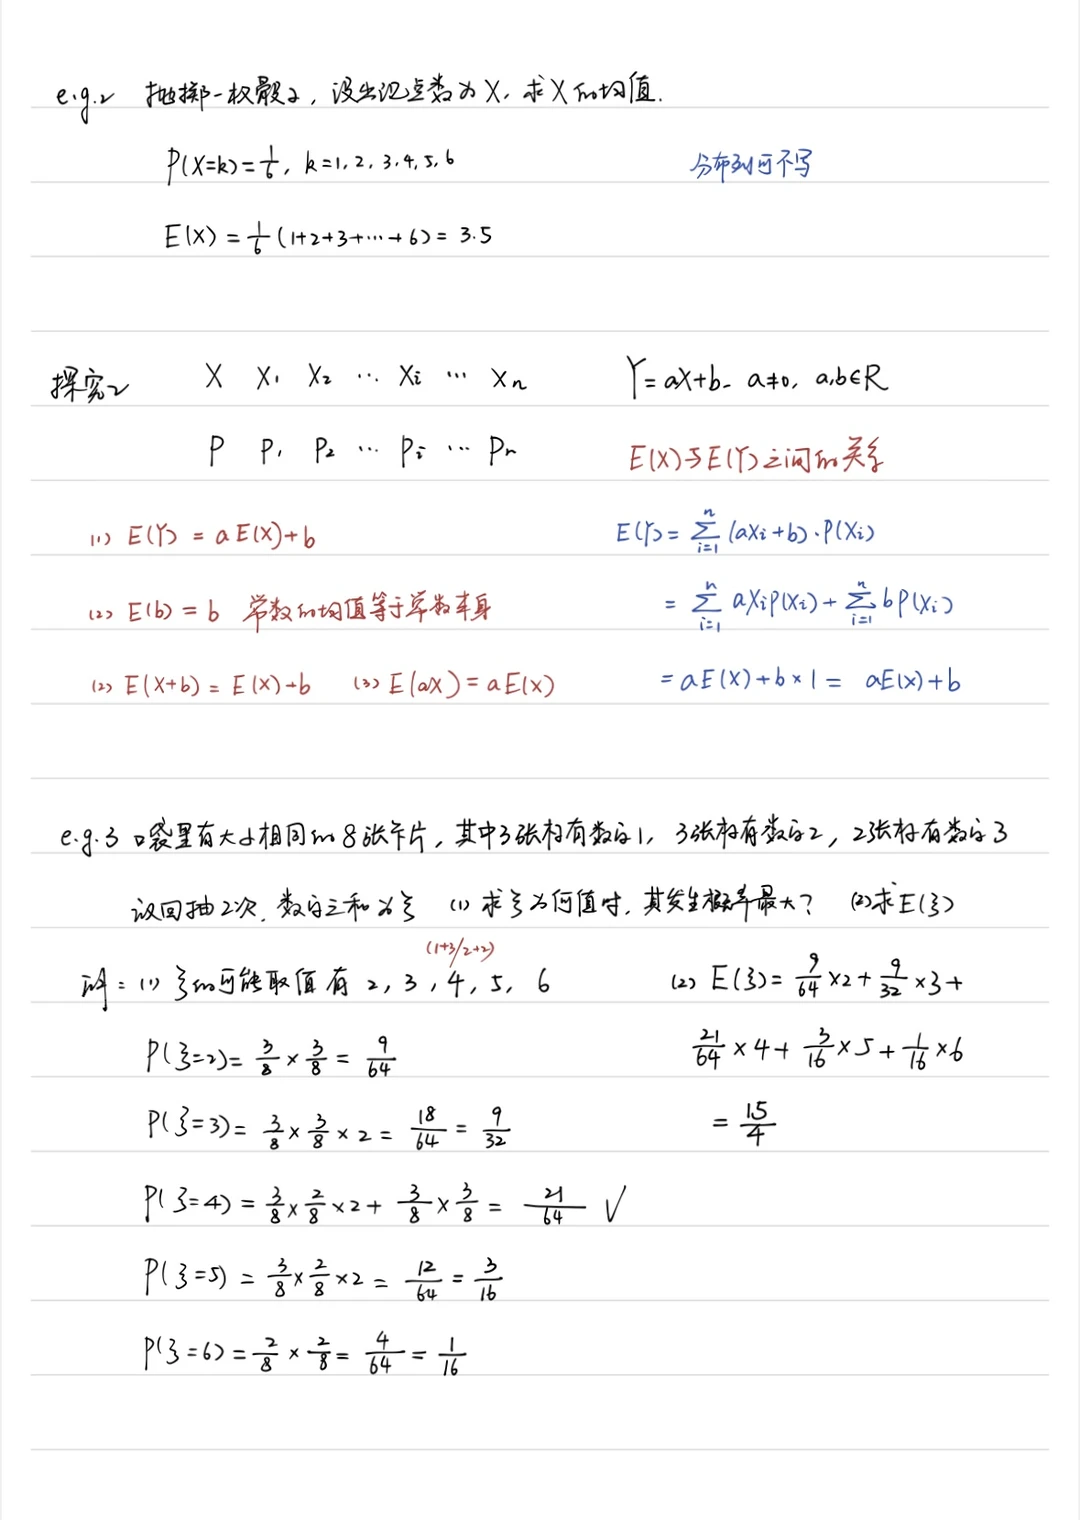 e.g.2 抛掷一枚骰子，设出现点数为X，求X的均值.
P(X=k)=1/6，k=1,2,3,4,5,6 分布列可不写
E(X)=1/6(1+2+3+⋯+6)=3.5
探究2 X X₁ X₂ ⋯ Xi ⋯ Xn Y=aX+b. a≠0, a,b∈R
P P₁ P₂ ⋯ Pi ⋯ Pn E(X)与E(Y)之间的关系
(1) E(Y)=aE(X)+b E(Y)=∑ⁿᵢ₌₁(aXi+b)·P(Xi)
(2) E(b)=b 常数的均值等于常数本身 =∑ⁿᵢ₌₁aXiP(Xi)+∑ⁿᵢ₌₁bP(Xi)
(2) E(X+b)=E(X)+b (3) E(aX)=aE(X) =aE(X)+b×1= aE(X)+b
e.g.3 口袋里有大小相同的8张卡片，其中3张标有数字1，3张标有数字2，2张标有数字3
放回抽2次，数字之和为ξ (1) 求ξ为何值时，其发生概率最大？ (2)求E(ξ)
(1+3/2+2)
解：(1) ξ的可能取值有 2, 3, 4, 5, 6 (2) E(ξ)=9/64×2+9/32×3+
P(ξ=2)=3/8×3/8=9/64 21/64×4+3/16×5+1/16×6
P(ξ=3)=3/8×3/8×2=18/64=9/32 =15/4
P(ξ=4)=3/8×2/8×2+3/8×3/8=21/64 √
P(ξ=5)=3/8×2/8×2=12/64=3/16
P(ξ=6)=2/8×2/8=4/64=1/16